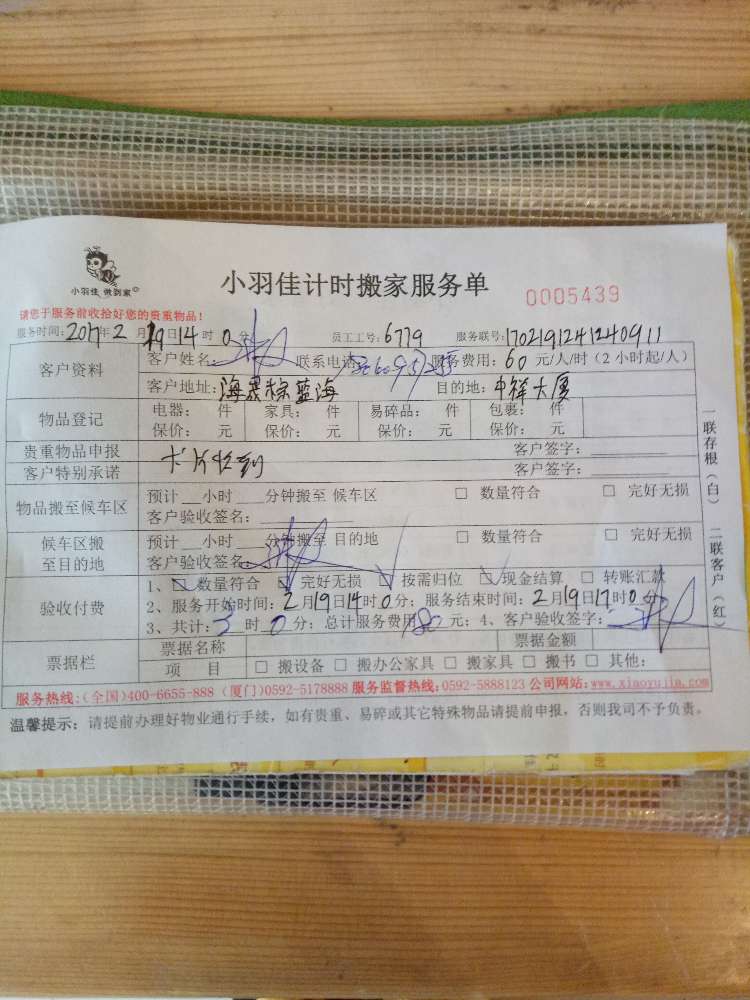 小羽佳 做到家
小羽佳计时搬家服务单
0005439
请您于服务前收拾好您的贵重物品!
服务时间:2017年2月19日14时0分 员工工号:6779 服务联号:1702191241240911
客户资料
客户姓名: 联系电话: 服务费用:60元/人/时(2小时起/人)
客户地址:海晟棕蓝海 目的地:中祥大厦
物品登记
电器: 件 家具: 件 易碎品: 件 包裹: 件
保价: 元 保价: 元 保价: 元 保价: 元
贵重物品申报 客户签字:
客户特别承诺 卡片收到 客户签字:
物品搬至候车区
预计__小时__分钟搬至 候车区 □ 数量符合 □ 完好无损
客户验收签名:
候车区搬至目的地
预计__小时__分钟搬至 目的地 □ 数量符合 □ 完好无损
客户验收签名:
验收付费
1、☑数量符合 ☑完好无损 ☑按需归位 ☑现金结算 □ 转账汇款
2、服务开始时间:2月19日14时0分;服务结束时间:2月19日17时0分
3、共计:3时0分;总计服务费用180元;4、客户验收签字:
票据栏
票据名称 票据金额
项 目 □ 搬设备 □ 搬办公家具 □ 搬家具 □ 搬书 □ 其他:
服务热线:(全国)400-6655-888 (厦门)0592-5178888 服务监督热线:0592-5888123 公司网站:www.xiaoyujia.com
温馨提示:请提前办理好物业通行手续,如有贵重、易碎或其它特殊物品请提前申报,否则我司不予负责。
一联存根(白) 二联客户(红)